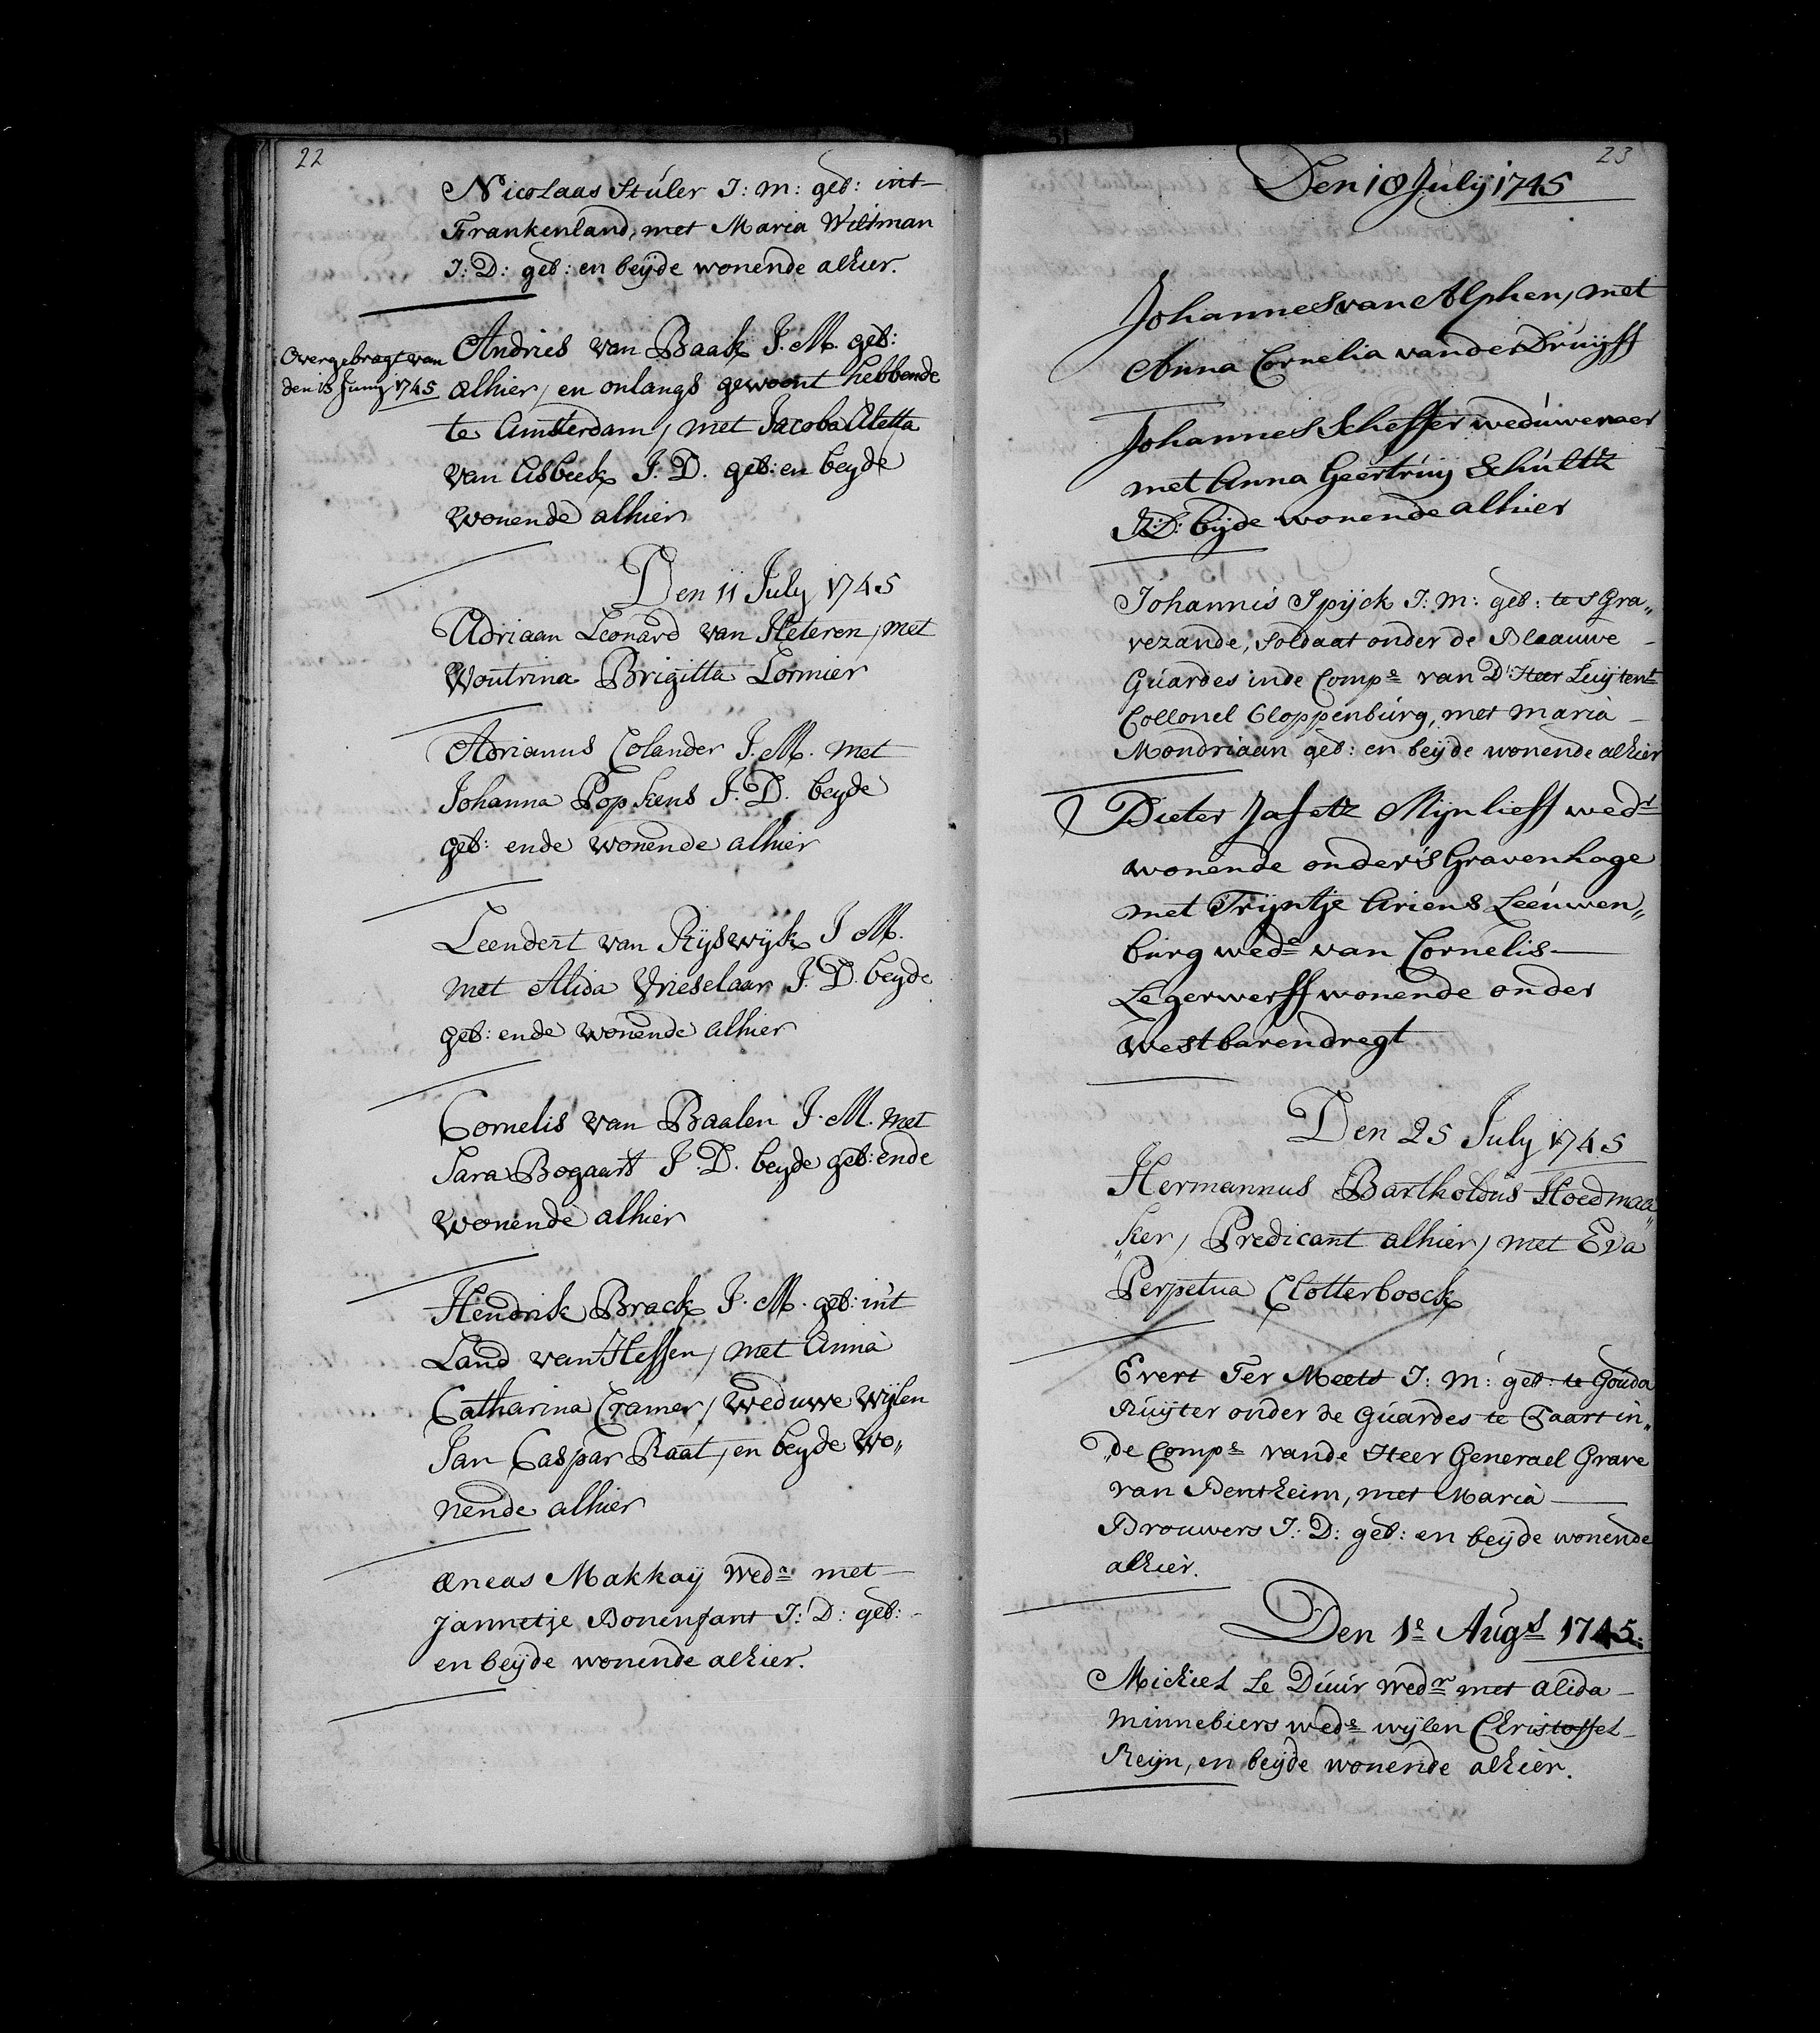 22
Nicolaas Stúler J: m: geb: int
Frankenland, met Maria Wiltman
J: D: geb: en beÿde wonende alhier.
Overgebragt van
den 13 Junij 1745
Andries van Baak J. M. geb:
alhier, en onlangs gewoont hebbende
te Amsterdam, met Jacoba Aletta
van Asbeek J. D. geb: en beyde
wonende alhier
Den 11 July 1745
Adriaan Leonard van Heteren, met
Woutrina Brigitta Lormier
Adrianus Colander J. M. met
Johanna Popkens J. D. beyde
geb: ende wonende alhier
Leendert van Rÿswÿk J M.
met Alida Vrieselaar J. D. beyde
geb: ende wonende alhier
Cornelis van Baalen J. M. met
Sara Bogaart J. D. beyde geb: ende
wonende alhier
Hendrik Brack J. M. geb: in't
Land van Hessen, met Anna
Catharina Cramer, Weduwe Wÿlen
Jan Caspar Raat, en beyde wo„
nende alhier
Æneas Makkaÿ Wedr met
Jannetje Bonenfant J: D: geb:
en beÿde wonende alhier.
23
Den 18 Julÿ 1745
Johannes van Alphen, met
Anna Cornelia van der Druijff
Johannes Scheffer wedúwenaer
met Anna Geertruij Schúltz
J:D: bÿde wonende alhier
Johannis Spÿck J: m: geb: te s Gra„
vezande, Soldaat onder de Blaauwe
Gúardes inde Compe van D' Heer Luÿtent
Collonel Cloppenbúrg, met Maria
Mondriaan geb: en beÿde wonende alhier
Pieter Jasetz Mijnlieff wedr
wonende onder 's Gravenhage
met Trijntje Ariens Leeúwen„
búrg wede van Cornelis
Legerwerff wonende onder
westbarendregt
Den 25 July 1745
Hermannus Bartholdus Hoedmaa„
„ker, Predicant alhier, met Eva
Perpetua Clotterboock
Evert Ter Meets J: m: geb: te Gouda
Rúÿter onder de Gúardes te Paart in„
„de Compe vande Heer Generael Grave
van Bentheim, met Maria
Brouwers J: D: geb: en beÿde wonende
alhier.
Den 1e Augs 1745.
Michiel Le Dúúr Wedr met Alida
Minnebiers wede wÿlen Christoffel
Reÿn, en beÿde wonende alhier.